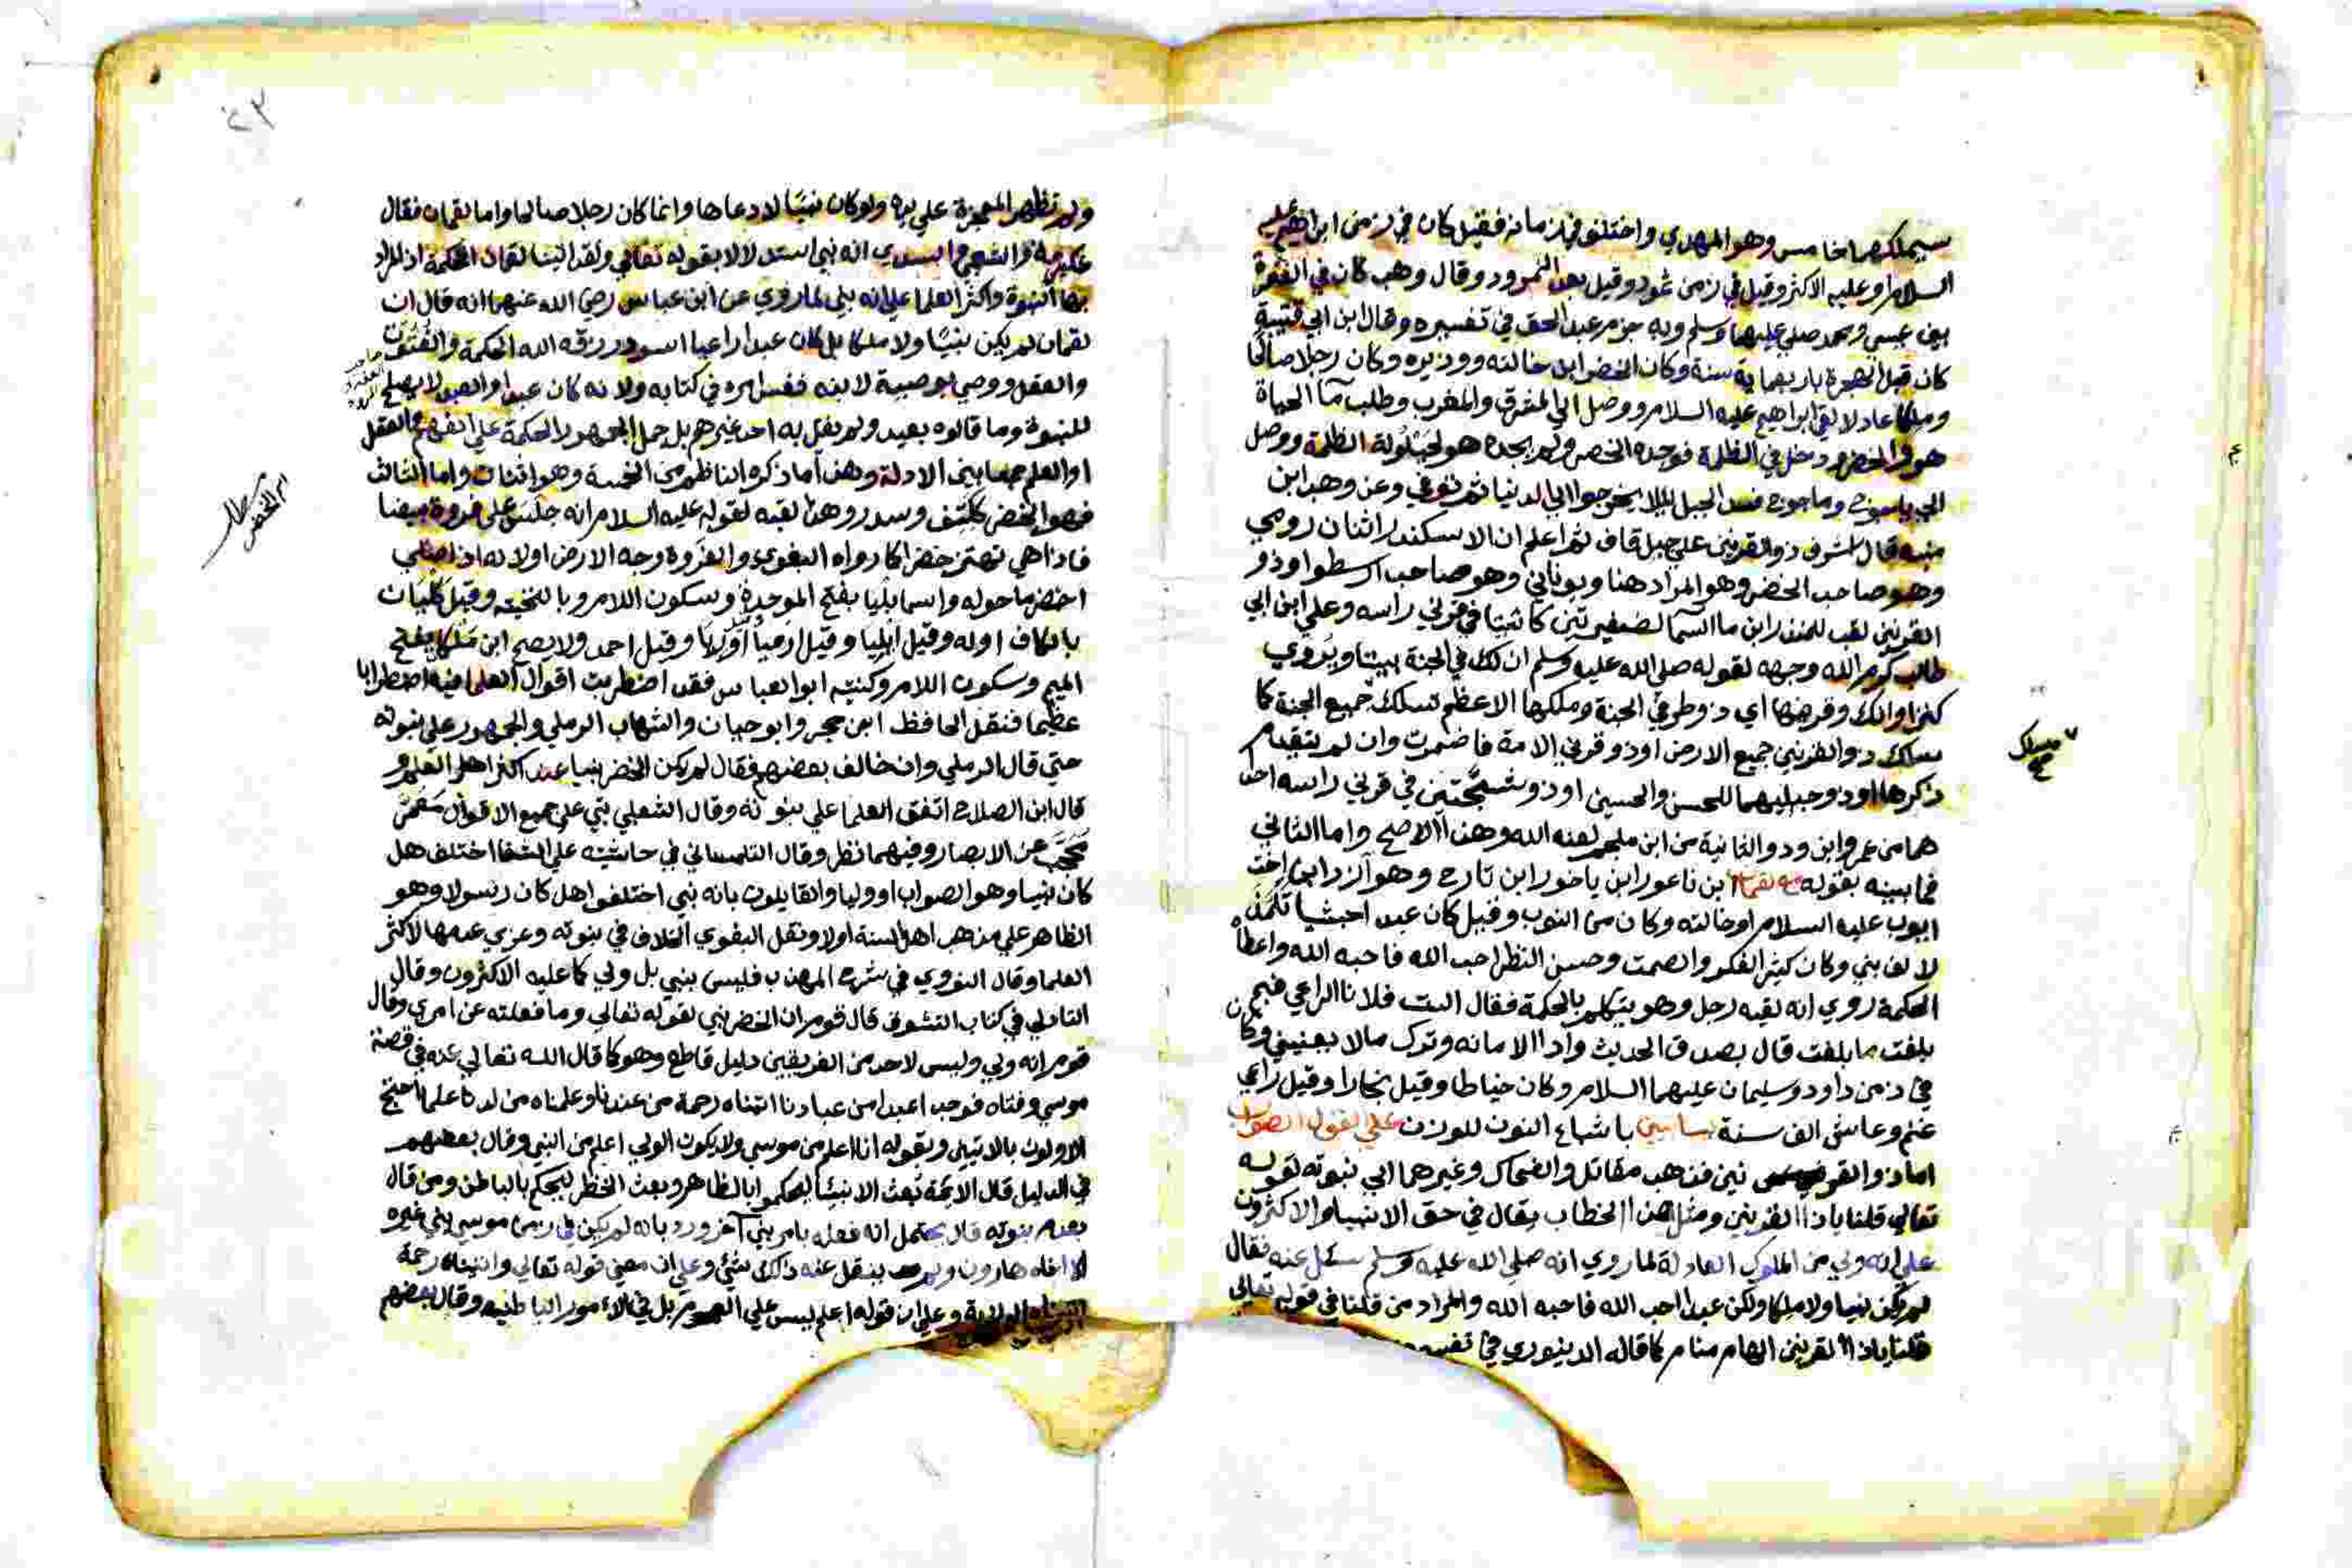 سيملكها خامس وهو المهدي واختلف في زمانه فقيل كان في زمن ابراهيم عليه
السلام وعليه الاكثر وقيل في زمن ثمود وقيل بعد النمرود وقال وهب كان في الفترة
بين عيسي ومحمد صلي عليهما وسلم وبه جزم عبد الحق في تفسيره وقال ابن ابي قتيبة
كان قبل الهجرة باربعماية سنة وكان الخضر ابن خالته ووزيره وكان رجلا صالحا
وملكا عادلا لقي ابراهيم عليه السلام ووصل الي المشرق والمغرب وطلب مآ الحياة
هو والخضر ودخل في الظلمة فوجده الخضر ولم يجده هو لحيلولة الظلمة ووصل
الي ياجوج وماجوج فسد الجبل ليلا يخرجوا الي الدنيا ثم توفي وعن وهب ابن
منبه قال اشرف ذو القرنين علي جبل قاف ثم اعلم ان الاسكندر اثنان رومي
وهو صاحب الخضر وهو المراد هنا ويوناني وهو صاحب ارسطوا وذو
القرنين لقب للمنذر ابن ما السما لضفيرتين كانتا في قرني راسه وعلي ابن ابي
طالب كرم الله وجهه لقوله صلي الله عليه وسلم ان لك في الجنة بيتا ويروي
كنزا وانك ذو قرنيها اي ذو طرفي الجنة وملكها الاعظم تسلك جميع الجنة كما
سلك ذو القرنين جميع الارض او ذو قرني الامة فاضمرت وان لم يتقدم
ذكرها او ذو جبليهما للحسن والحسين او ذو شجتين في قرني راسه احد
هما من عمرو ابن ود والثانية من ابن ملجم لعنه الله وهذا الاصح واما الثاني
فما بينه بقوله مع لقمان ابن ناعور ابن ياخور ابن تارح وهو آزر ابن اخت
ايوب عليه السلام او خالته وكان من النوب وقيل كان عبدا حبشيا تلمذ
لالف نبي وكان كثير الفكر والصمت وحسن النظر احب الله فاحبه الله واعطاه
الحكمة روي انه لقيه رجل وهو يتكلم بالحكمة فقال الست فلانا الراعي فبم
بلغت ما بلغت قال بصدق الحديث وادا الامانه وترك مالا يعنيني وكان
في زمن داود وسليمان عليهما السلام وكان خياطا وقيل نجارا وقيل راعي
غنم وعاش الف سنة باشباع النون للوزن علي القول الصواب
اما ذو القرنين فذهب مقاتل والضحاك وغيرهما الي نبوته لقوله
تعالي قلنا ياذا القرنين ومثل هذا الخطاب يقال في حق الانبيا والاكثرون
علي انه ولي من الملوك العادلة لما روي انه صلي الله عليه وسلم سئل عنه فقال
لم يكن نبيا ولا ملكا ولكن عبدا احب الله فاحبه الله والمراد من قلنا في قوله تعالي
قلنا ياذا القرنين الهام منام كما قاله الدينوري في
مسلك
ولم تظهر المعجزة علي يده ولو كان نبيا لادعاها وانما كان رجلا صالحا واما لقمان فقال
عكرمة والشعبي والسدي انه نبي استدلالا بقوله تعالي ولقد اتينا لقمان الحكمة اذ المراد
بها النبوة واكثر العلما علي انه ولي لما روي عن ابن عباس رضي الله عنهما انه قال ان
لقمان لم يكن نبيا ولا ملكا بل كان عبدا راعيا اسود ورزقه الله الحكمة والفتوة
والعقل ووصي بوصية لابنه فقس امره في كتابه ولانه كان عبدا والعبد لا يصلح
للنبوة وما قالوه بعيد ولم يقل به احد غيرهم بل حمل الجمهور الحكمة علي الفهم والعقل
او العلم جمعا بين الادلة وهذا ما ذكره الناظم من الخمسة وهو اثنان واما الثالث
فهو الخضر ككتف وسدر وهذا لقبه لقوله عليه السلام انه جلس علي فروة بيضا
فاذا هي تهتز خضرا كما رواه البغوي والفروة وجه الارض اولانه اذا صلي
اخضر ما حوله واسمه بليا بفتح الموحدة وسكون اللام وبالتحتيه وقيل كليان
بالكاف اوله وقيل ايليا وقيل ارميا وقيل احمد ولا يصح ابن ملكا بفتح
الميم وسكون اللام وكنيته ابو العباس فقد اضطربت اقوال العلما فيه اضطرابا
عظيما فنقل الحافظ ابن حجر وابو حيان والشهاب الرملي والجمهور علي نبوته
حتي قال الرملي وان خالف بعضهم فقال لم يكن الخضر نبيا عند اكثر اهل العلم و
قال ابن الصلاح اتفق العلما علي نبوته وقال الثعلبي نبي علي جميع الاقوال معمر
محجب عن الابصار وفيهما نظر وقال التلمساني في حاشيته علي الشفا اختلف هل
كان نبيا وهو الصواب او وليا والقايلون بانه نبي اختلفوا هل كان رسولا وهو
الظاهر علي مذهب اهل السنة اولا ونقل البغوي الخلاف في نبوته وعزي عدمها لاكثر
العلما وقال النووي في شرح المهذب فليس بنبي بل ولي كما عليه الاكثرون وقال
التادلي في كتاب التشوف قال قوم ان الخضر نبي لقوله تعالي وما فعلته عن امري وقال
قوم انه ولي وليس لاحد من الفريقين دليل قاطع وهو كما قال الله تعالي عنه في قصة
موسي وفتاه فوجدا عبدا من عبادنا اتيناه رحمة من عندنا وعلمناه من لدنا علما احتج
الاولون بالايتين وبقوله انا اعلم من موسي ولا يكون الولي اعلم من النبي وقال بعضهم
في الدليل قال الايمة تبعث الانبيا ليحكموا بالظاهر وبعث الخضر ليحكم بالباطن ومن قال
بعدم نبوته قال يحتمل انه فعله بامر نبي آخر ورد بانه لم يكن في زمن موسي نبي غيره
الا اخاه هارون ولم ينقل عنه ذلك شئ وعلي ان معني قوله تعالي واتيناه رحمة
الولاية وعلي ان قوله اعلم ليس علي العموم بل في الامور الباطنيه وقال بعضهم